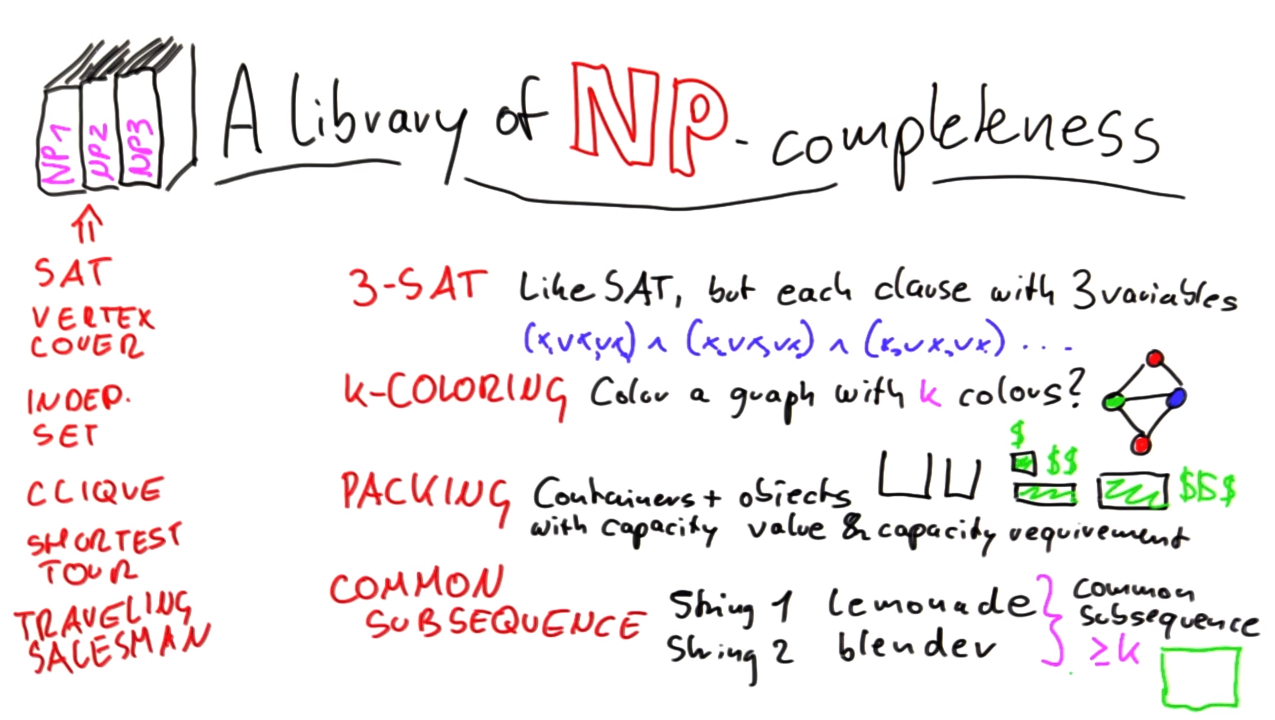 NP1 NP2 NP3
A library of NP-completeness
SAT
VERTEX
COVER
INDEP.
SET
CLIQUE
SHORTEST
TOUR
TRAVELING
SALESMAN
3-SAT Like SAT, but each clause with 3 variables
(x,vx,vx,) ∧ (x,vx,vx,) ∧ (x,vx,vx,) ...
K-COLORING Color a graph with k colors?
PACKING Containers + objects
with capacity value & capacity requirement
$
$$
$$$
COMMON
SUBSEQUENCE
String 1 lemonade
String 2 blender
common
subsequence
≥k